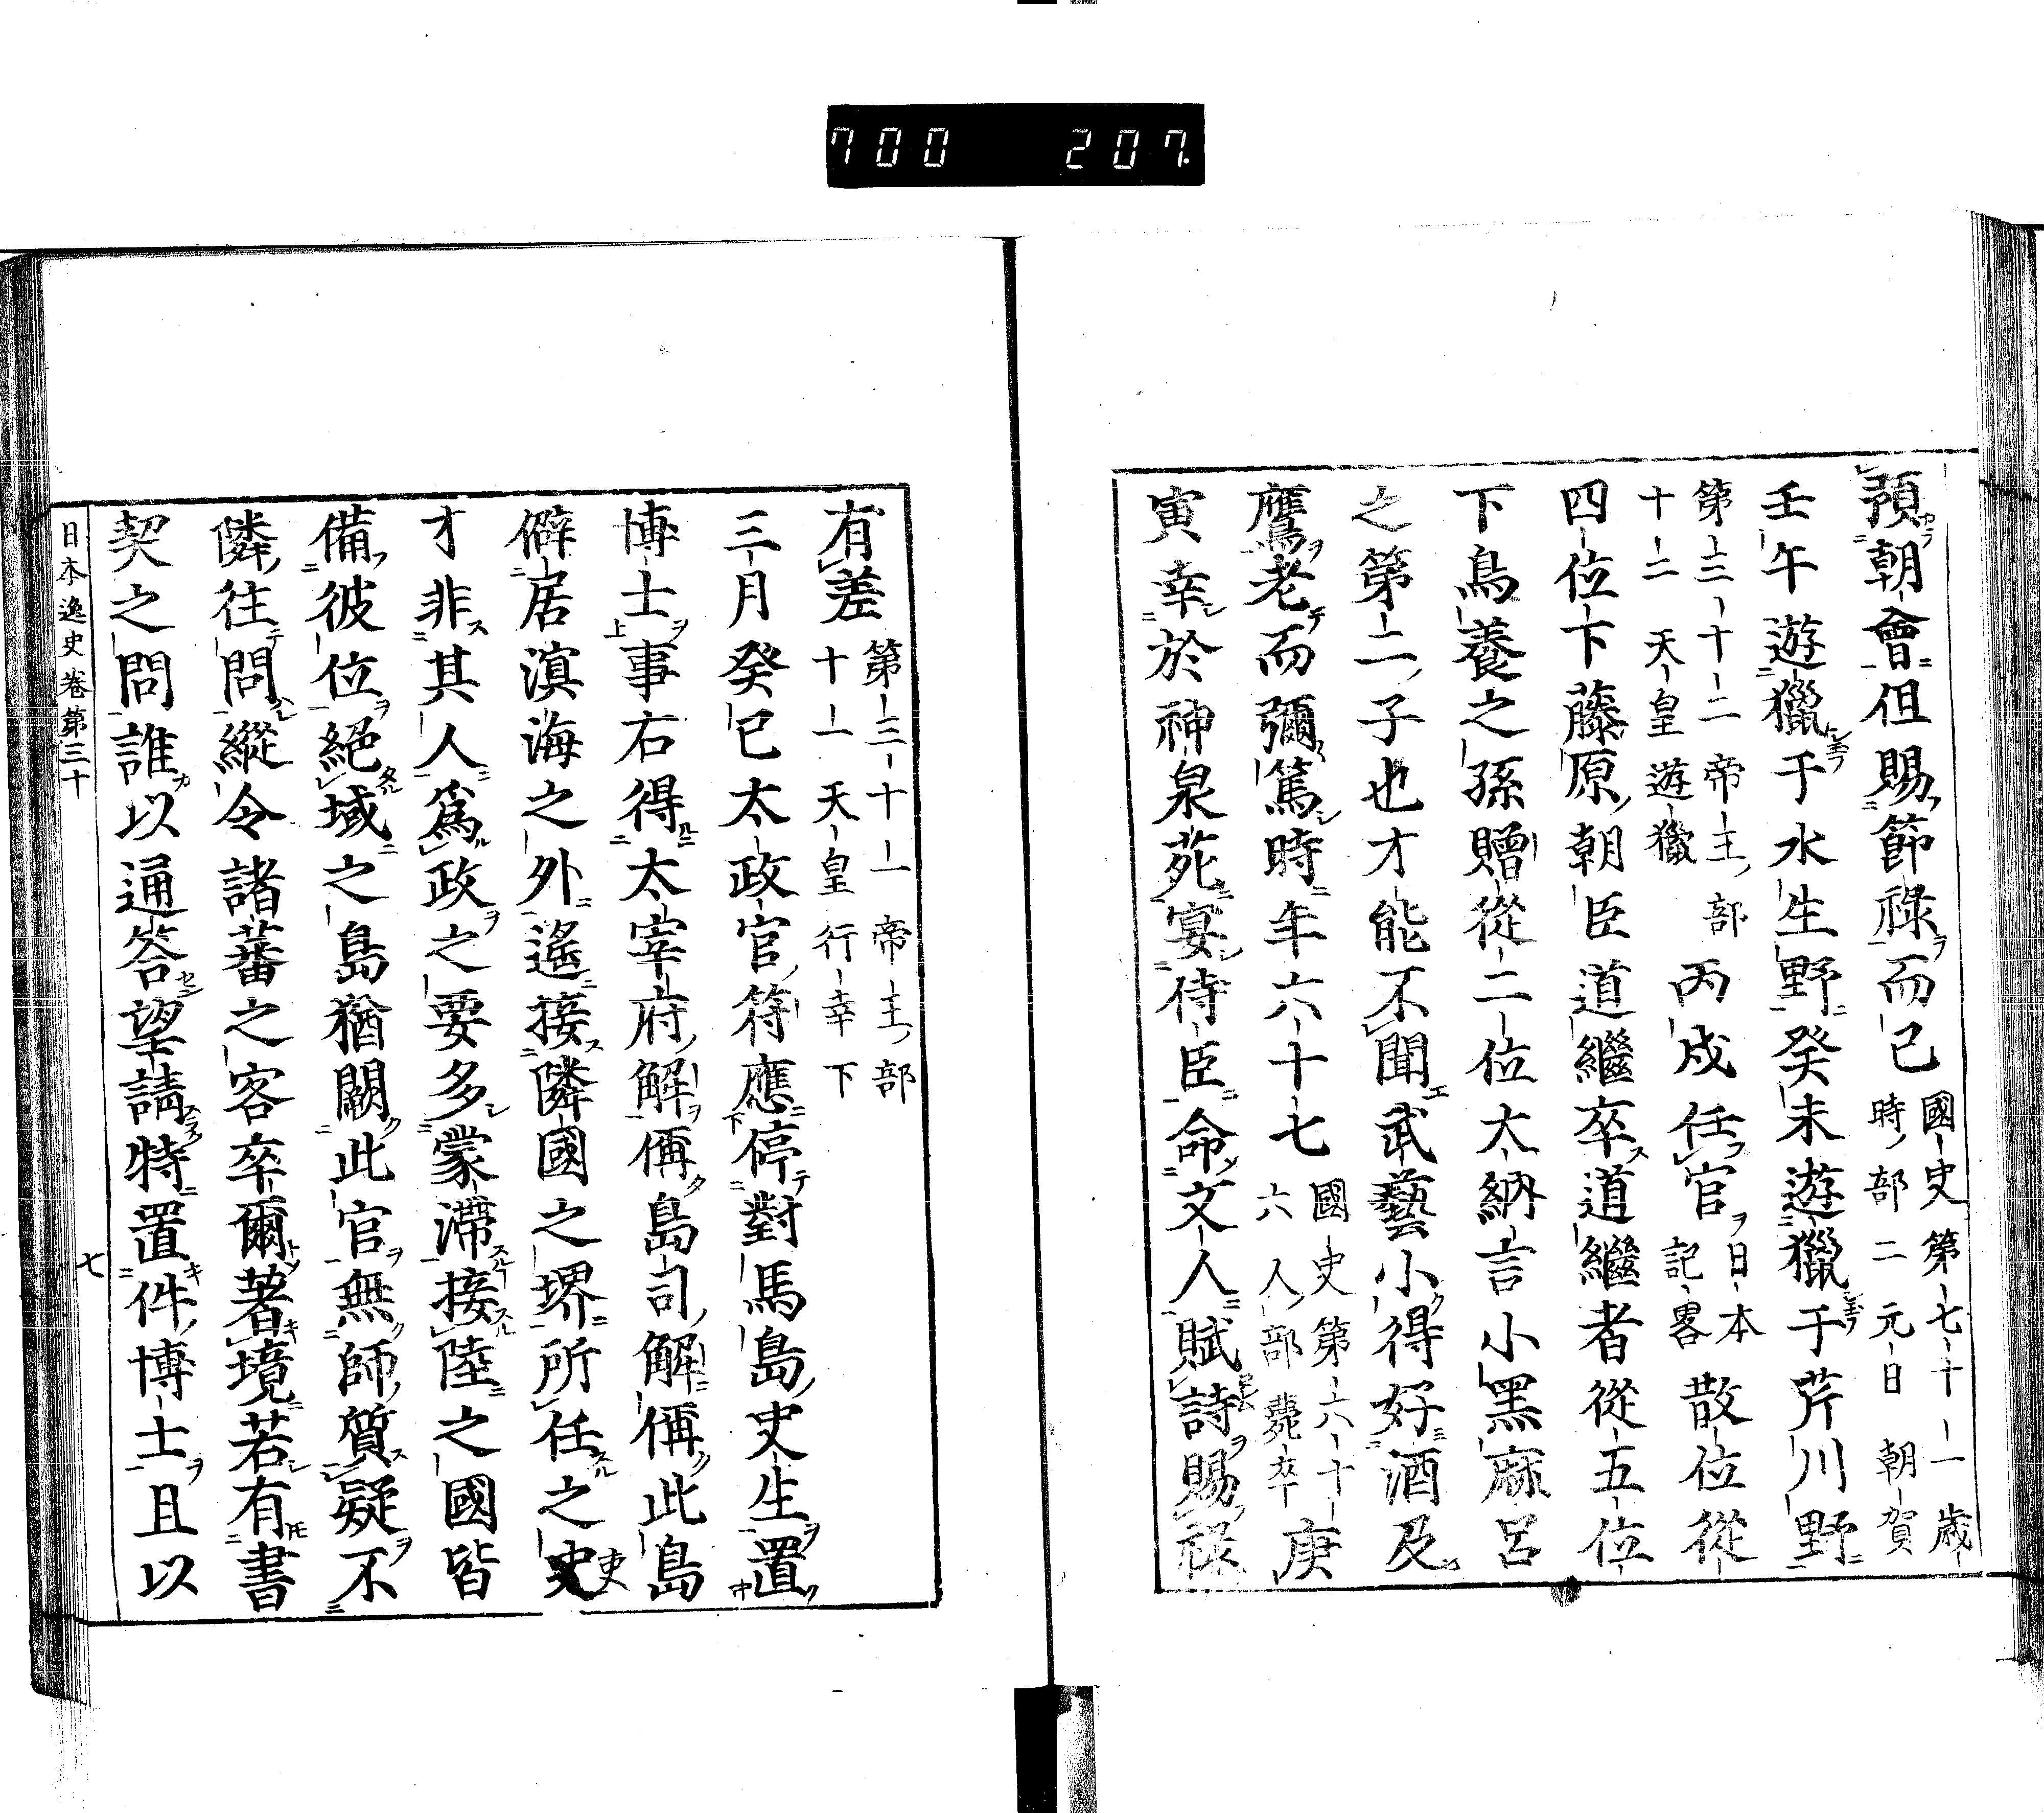 700 207.
預朝會但賜節祿而已 國史第七十一歲時部二元日朝賀
壬午遊獵于水生野癸未遊獵于芹川野
第三十二帝王部十二天皇遊獵 丙戌任官 日本記畧 散位從
四位下藤原朝臣道繼卒道繼者從五位
下鳥養之孫贈從二位大納言小黑麻呂
之第二子也才能不聞武藝小得好酒及
鷹老而彌篤時年六十七 國史第六十六人部薨卒 庚
寅幸於神泉苑宴侍臣命文人賦詩賜祿
有差 第三十一帝王部十一天皇行幸下
三月癸巳太政官符應停對馬島史生置
博士事右得太宰府解偁島司解偁此島
僻居溟海之外遙接隣國之堺所任之史吏
才非其人爲政之要多蒙滯接陸之國皆
備彼位絕域之島猶闕此官無師質疑不
隣往問縱令諸蕃之客卒爾著境若有書
契之問誰以通答望請特置件博士且以
日本逸史卷第三十 七